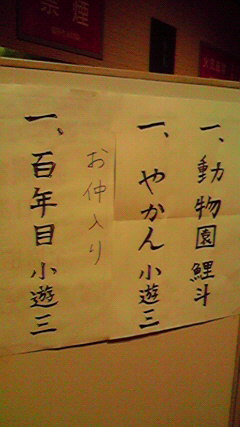 禁煙
一、動物園 鯉斗
一、やかん 小遊三
お仲入り
一、百年目 小遊三